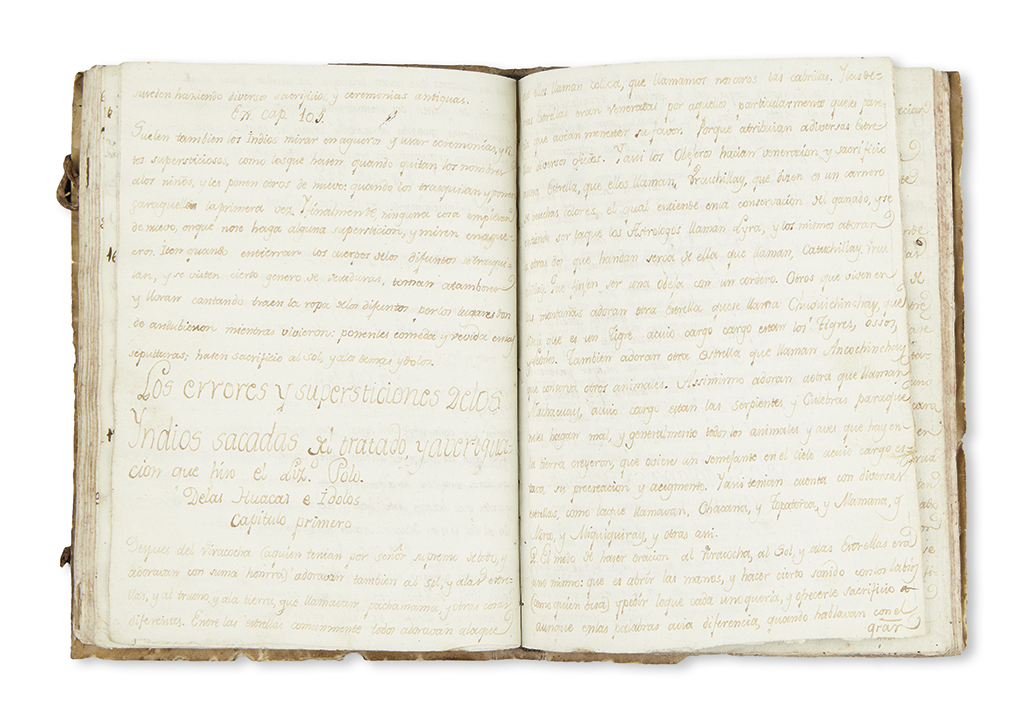 suelen haziendo diversos sacrificios y ceremonias antiguas.
En cap. 101.
Suelen tambien los Indios mirar en agueros y usar ceremonias, y
tos supersticiosos, como los que hazen quando quitan los nombres
a los niños, y les ponen otros de nuevo: quando los trasquilan y ponen
la primera vez. Y finalmente, ninguna cosa empiezan
de nuevo, en que no se haga alguna supersticion, y miren en ague-
ros. Iten quando entierran los cuerpos de los difuntos se trasqui-
lan, y se visten cierto genero de vestiduras, toman atambores
y lloran cantando traen la ropa de los difuntos por los lugares don
de andubieron mientras vivieron: ponenles comida y bevida en las
sepulturas; hasen sacrificio al Sol, y a la y Idolos.
Los errores y supersticiones de los
Yndios sacadas del tratado, y averigua-
cion que hizo el Liz.do Polo.
De las Huacas e Idolos
Capitulo primero
Despues del Viracocha (a quien tenian por señor supremo de todo, y
adoravan con suma honrra) adoravan tambien al sol, y a las estre-
llas, y al trueno, y a la tierra, que llamavan, pachamama, y otras cosas
diferentes. Entre las estrellas comunmente todos adoravan a la que
ellos llaman collca, que llamamos nosotros las cabrillas. Y las de-
mas estrellas eran veneradas por aquellos particularmente que les pare-
que avian menester su favor. Porque atribuian a diversas estre
llas diversos oficios. Y assi los Ovejeros hazian veneracion y sacrificio
a una Estrella, que ellos llaman, Vrcuchillay, que dizen es un carnero
de muchas colores, el qual entiende en la conservacion del ganado, y se
entiende ser la que los Astrologos llaman Lyra, y los mismos adoran
a otras dos que handan serca de ella que llaman, Catuchillay, Vrcu
chillay. Que finjen ser una Obeja con un cordero. Otros que viven en
las montañas adoran otra estrella que se llama Chuquichinchay, que
dizen que es un Tigre a cuio cargo cargo estan los Tigres, Ossos,
y Leones. Tambien adoran otra estrella que llaman Ancochinchay
que conserva otros animales. Assimismo adoran a otra que llaman
Machacuay, a cuio cargo estan las Serpientes y Culebras para que
no les hagan mal, y generalmente todos los animales y aves que hay en
la tierra creyeron, que oviese un semejante en el cielo a cuio cargo es-
tava su procreacion y aumento. Y assi tenian cuenta con diversas
estrellas, como la que llamavan, Chacana, y Topatarca, y Mamana, y
Mirco, y Miquiquiray, y otras assi.
2. El modo de hacer oracion al Viracocha, al Sol, y a las Estrellas era
uno mismo: que es abrir las manos, y hacer cierto sonido con los labios
(como quien besa) y pedir lo que cada uno queria, y ofrecerle sacrificio
aunque en las palabras avia diferencia, quando hablavan con el
gran